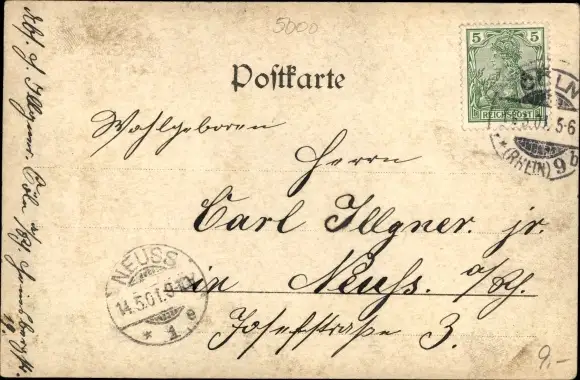 5000
5 5
REICHSPOST
Postkarte
CÖLN
5-6
(RHEIN) 9 b
Wohlgeboren
Herrn
Carl Illgner. jr.
in Neuss. a/Rh.
Josefstraße 3.
NEUSS
14.5.01.9-10
* 1 e
Illgner. Cöln a/Rh.
9.-